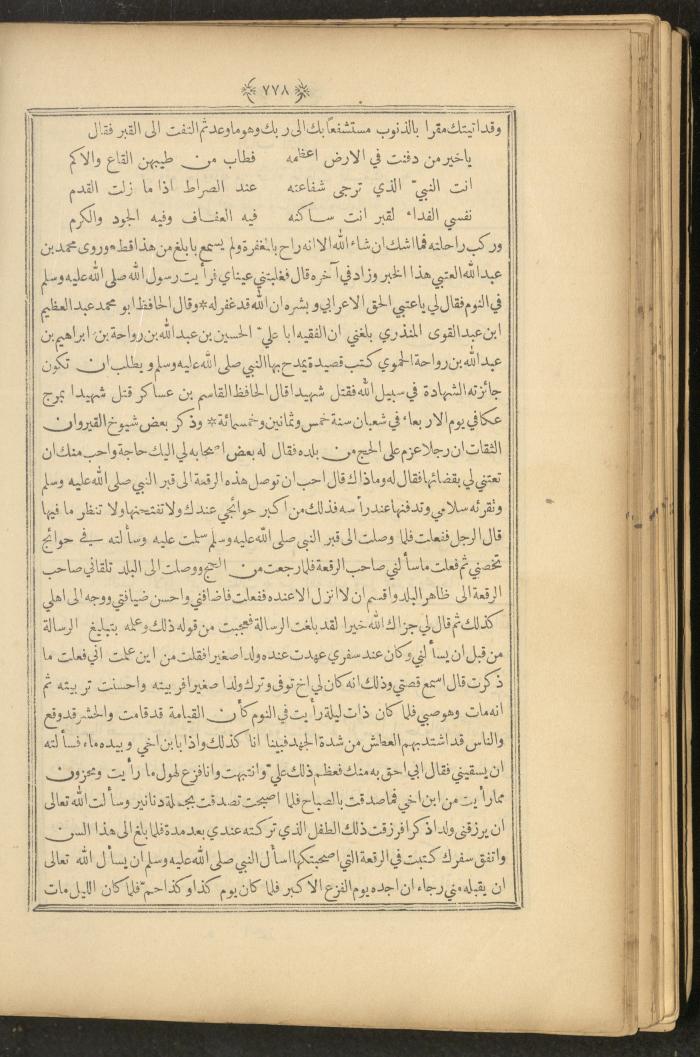 ٧٧٨
وقد اتيتك مقرا بالذنوب مستشفعا بك الى ربك وهو ما وعد ثم التفت الى القبر فقال
ياخير من دفنت في الارض اعظمه فطاب من طيبهن القاع والاكم
انت النبيّ الذي ترجى شفاعته عند الصراط اذا ما زلت القدم
نفسي الفداء لقبر انت ساكنه فيه العفاف وفيه الجود والكرم
وركب راحلته فما اشك ان شاء الله الا انه راح بالمغفرة ولم يسمع بابلغ من هذا قط* وروى محمد بن
عبد الله العتبي هذا الخبر وزاد في آخره قال فغلبتني عيناي فرأيت رسول الله صلى الله عليه وسلم
في النوم فقال لي يا عتبي الحق الاعرابي وبشره ان الله قد غفر له* وقال الحافظ ابو محمد عبد العظيم
ابن عبد القوى المنذري بلغني ان الفقيه ابا عليّ الحسين بن عبد الله بن رواحة بن ابراهيم بن
عبد الله بن رواحة الحموي كتب قصيدة يمدح بها النبي صلى الله عليه وسلم ويطلب ان تكون
جائزته الشهادة في سبيل الله فقتل شهيدا قال الحافظ القاسم بن عساكر قتل شهيدا بمرج
عكا في يوم الاربعاء في شعبان سنة خمس وثمانين وخمسمائة* وذكر بعض شيوخ القيروان
الثقات ان رجلا عزم على الحج من بلده فقال له بعض اصحابه لي اليك حاجة واحب منك ان
تعتني لي بقضائها فقال له وما ذاك قال احب ان توصل هذه الرقعة الى قبر النبي صلى الله عليه وسلم
وتقرئه سلامي وتدفنها عند رأسه فذلك من اكبر حوائجي عندك ولا تفتحنها ولا تنظر ما فيها
قال الرجل ففعلت فلما وصلت الى قبر النبي صلى الله عليه وسلم سلمت عليه وسألته في حوائج
تخصني ثم فعلت ما سألني صاحب الرقعة فلما رجعت من الحج ووصلت الى البلد تلقاني صاحب
الرقعة الى ظاهر البلد واقسم ان لا انزل الا عنده ففعلت فاضافني واحسن ضيافتي ووجه الى اهلي
كذلك ثم قال لي جزاك الله خيرا لقد بلغت الرسالة فعجبت من قوله ذلك وعلمه بتبليغ الرسالة
من قبل ان يسألني وكان عند سفري عهدت عنده ولدا صغيرا فقلت من اين علمت اني فعلت ما
ذكرت قال اسمع قصتي وذلك انه كان لي اخ توفى وترك ولدا صغيرا فربيته واحسنت تربيته ثم
انه مات وهو صبي فلما كان ذات ليلة رأيت في النوم كأن القيامة قد قامت والحشر قد وقع
والناس قد اشتد بهم العطاش من شدة الجهد فبينا انا كذلك واذا بابن اخي وبيده ماء فسألته
ان يسقيني فقال ابي احق به منك فعظم ذلك عليّ وانتبهت وانا فزع لهول ما رأيت ومحزون
مما رأيت من ابن اخي فما صدقت بالصباح فلما اصبحت تصدقت بجملة دنانير وسألت الله تعالى
ان يرزقني ولدا ذكرا فرزقت ذلك الطفل الذي تركته عندي بعد مدة فلما بلغ الى هذا السن
واتفق سفرك كتبت في الرقعة التي اصحبتكها اسأل النبي صلى الله عليه وسلم ان يسأل الله تعالى
ان يقبله مني رجاء ان اجده يوم الفزع الاكبر فلما كان يوم كذا وكذا حمّ فلما كان الليل مات